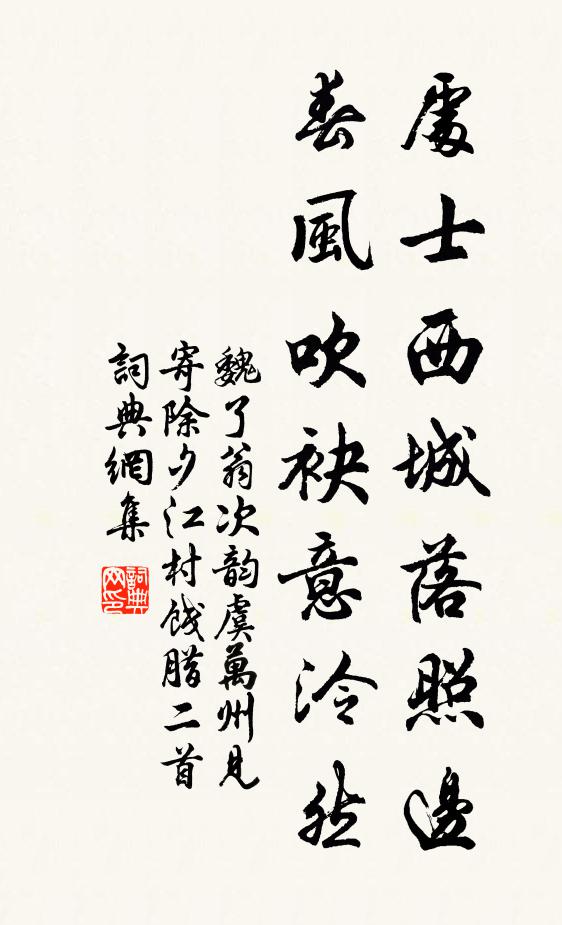 處士西城落照邊
春風吹袂意泠然
魏了翁次韵虞萬州見
寄除夕江村餞腊二首
詞典網集
詞典網印